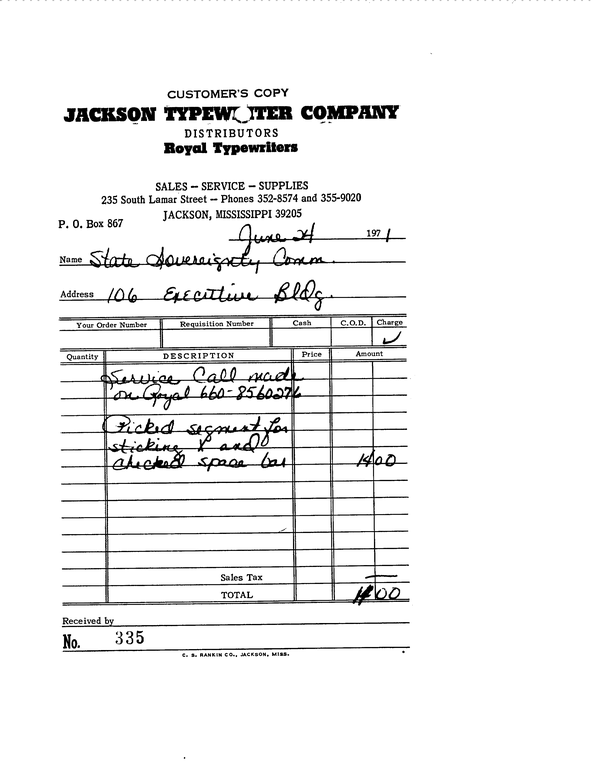 CUSTOMER'S COPY
JACKSON TYPEWRITER COMPANY
DISTRIBUTORS
Royal Typewriters
SALES — SERVICE — SUPPLIES
235 South Lamar Street — Phones 352-8574 and 355-9020
JACKSON, MISSISSIPPI 39205
P. O. Box 867
June 24 1971
Name State Sovereignty Comm.
Address 106 Executive Bldg.
Your Order Number Requisition Number Cash C.O.D. Charge
✓
Quantity DESCRIPTION Price Amount
Service Call made
on Royal 660-8560276
Picked segment for
sticking and
checked space bar 14 00
Sales Tax —
TOTAL 14 00
Received by
No. 335
C. S. RANKIN CO., JACKSON, MISS.